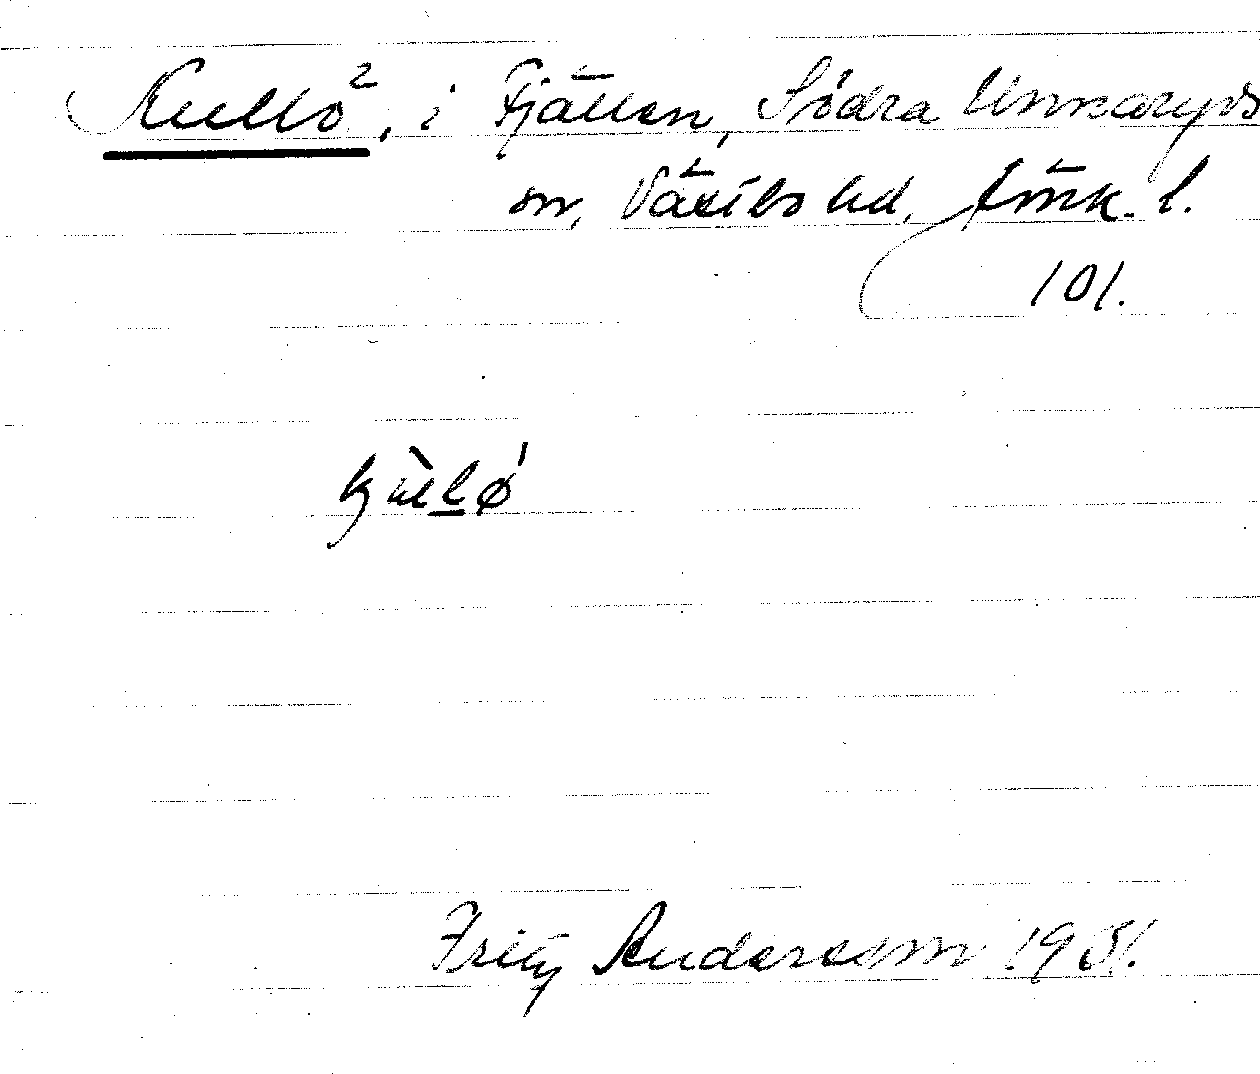 Kullö², i Fjällen, Södra Unnaryds
sn, Västbo hd, Jönk. l.
101.
kùllø'
Fritz Andersson